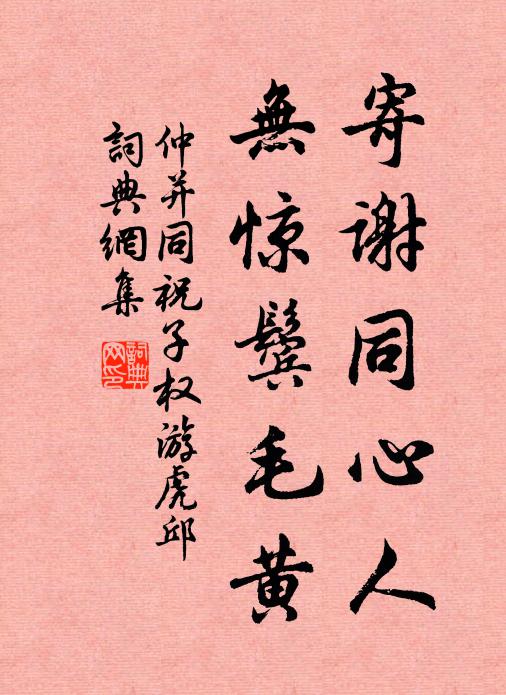 寄謝同心人
無惊鬓毛黄
仲并同祝子权游虎邱
詞典網集
詞典网印